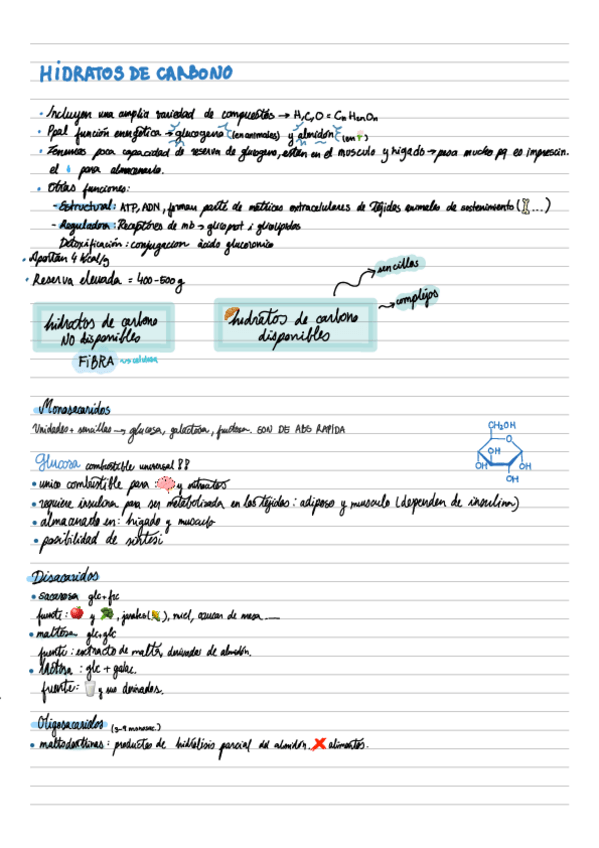 HIDRATOS DE CARBONO
· Incluyen una amplia variedad de compuestos → H, C, O = Cn H2n On
· Ppal función energética → glucogeno (en animales) y almidón (en )
· Tenemos poca capacidad de reserva de glucogeno, estan en el musculo y higado → pesa mucho pq es imprescin.
el para almacenarlo.
· Otras funciones:
- Estructural: ATP, ADN, forman parte de matrices extracelulares de Tejidos animales de sostenimiento ( ...)
- Reguladora: Receptores de mb → glicoprot i glicolipidos
Detoxificación: conjugacion àcido glucoronico
· Aportan 4 Kcal/g
· Reserva elevada = 400-500 g
sencillos
complejos
hidratos de carbono
NO disponibles
hidratos de carbono
disponibles
FIBRA → celulosa
Monosacaridos
Unidades + sencillas → glucosa, galactosa, fructosa. SON DE ABS RAPIDA
Glucosa combustible universal !!
· unico combustible para : y eritrocitos
· requiere insulina para ser metabolizada en los tejidos: adiposo y musculo (dependen de insulina)
· almacenado en: higado y musculo
· posibilidad de sintesi
CH2OH
O
OH
OH
OH
OH
Disacaridos
· sacarosa glc + frc
fuente: y , jarabes ( ), miel, azucar de mesa
· maltosa glc + glc
fuente: extracto de malta, derivados de almidón.
· lactosa : glc + galac.
fuente: y sus derivados.
Oligosacaridos (3-9 monosac.)
· maltodextrinas: productos de hidrólisis parcial del almidón. alimentos.